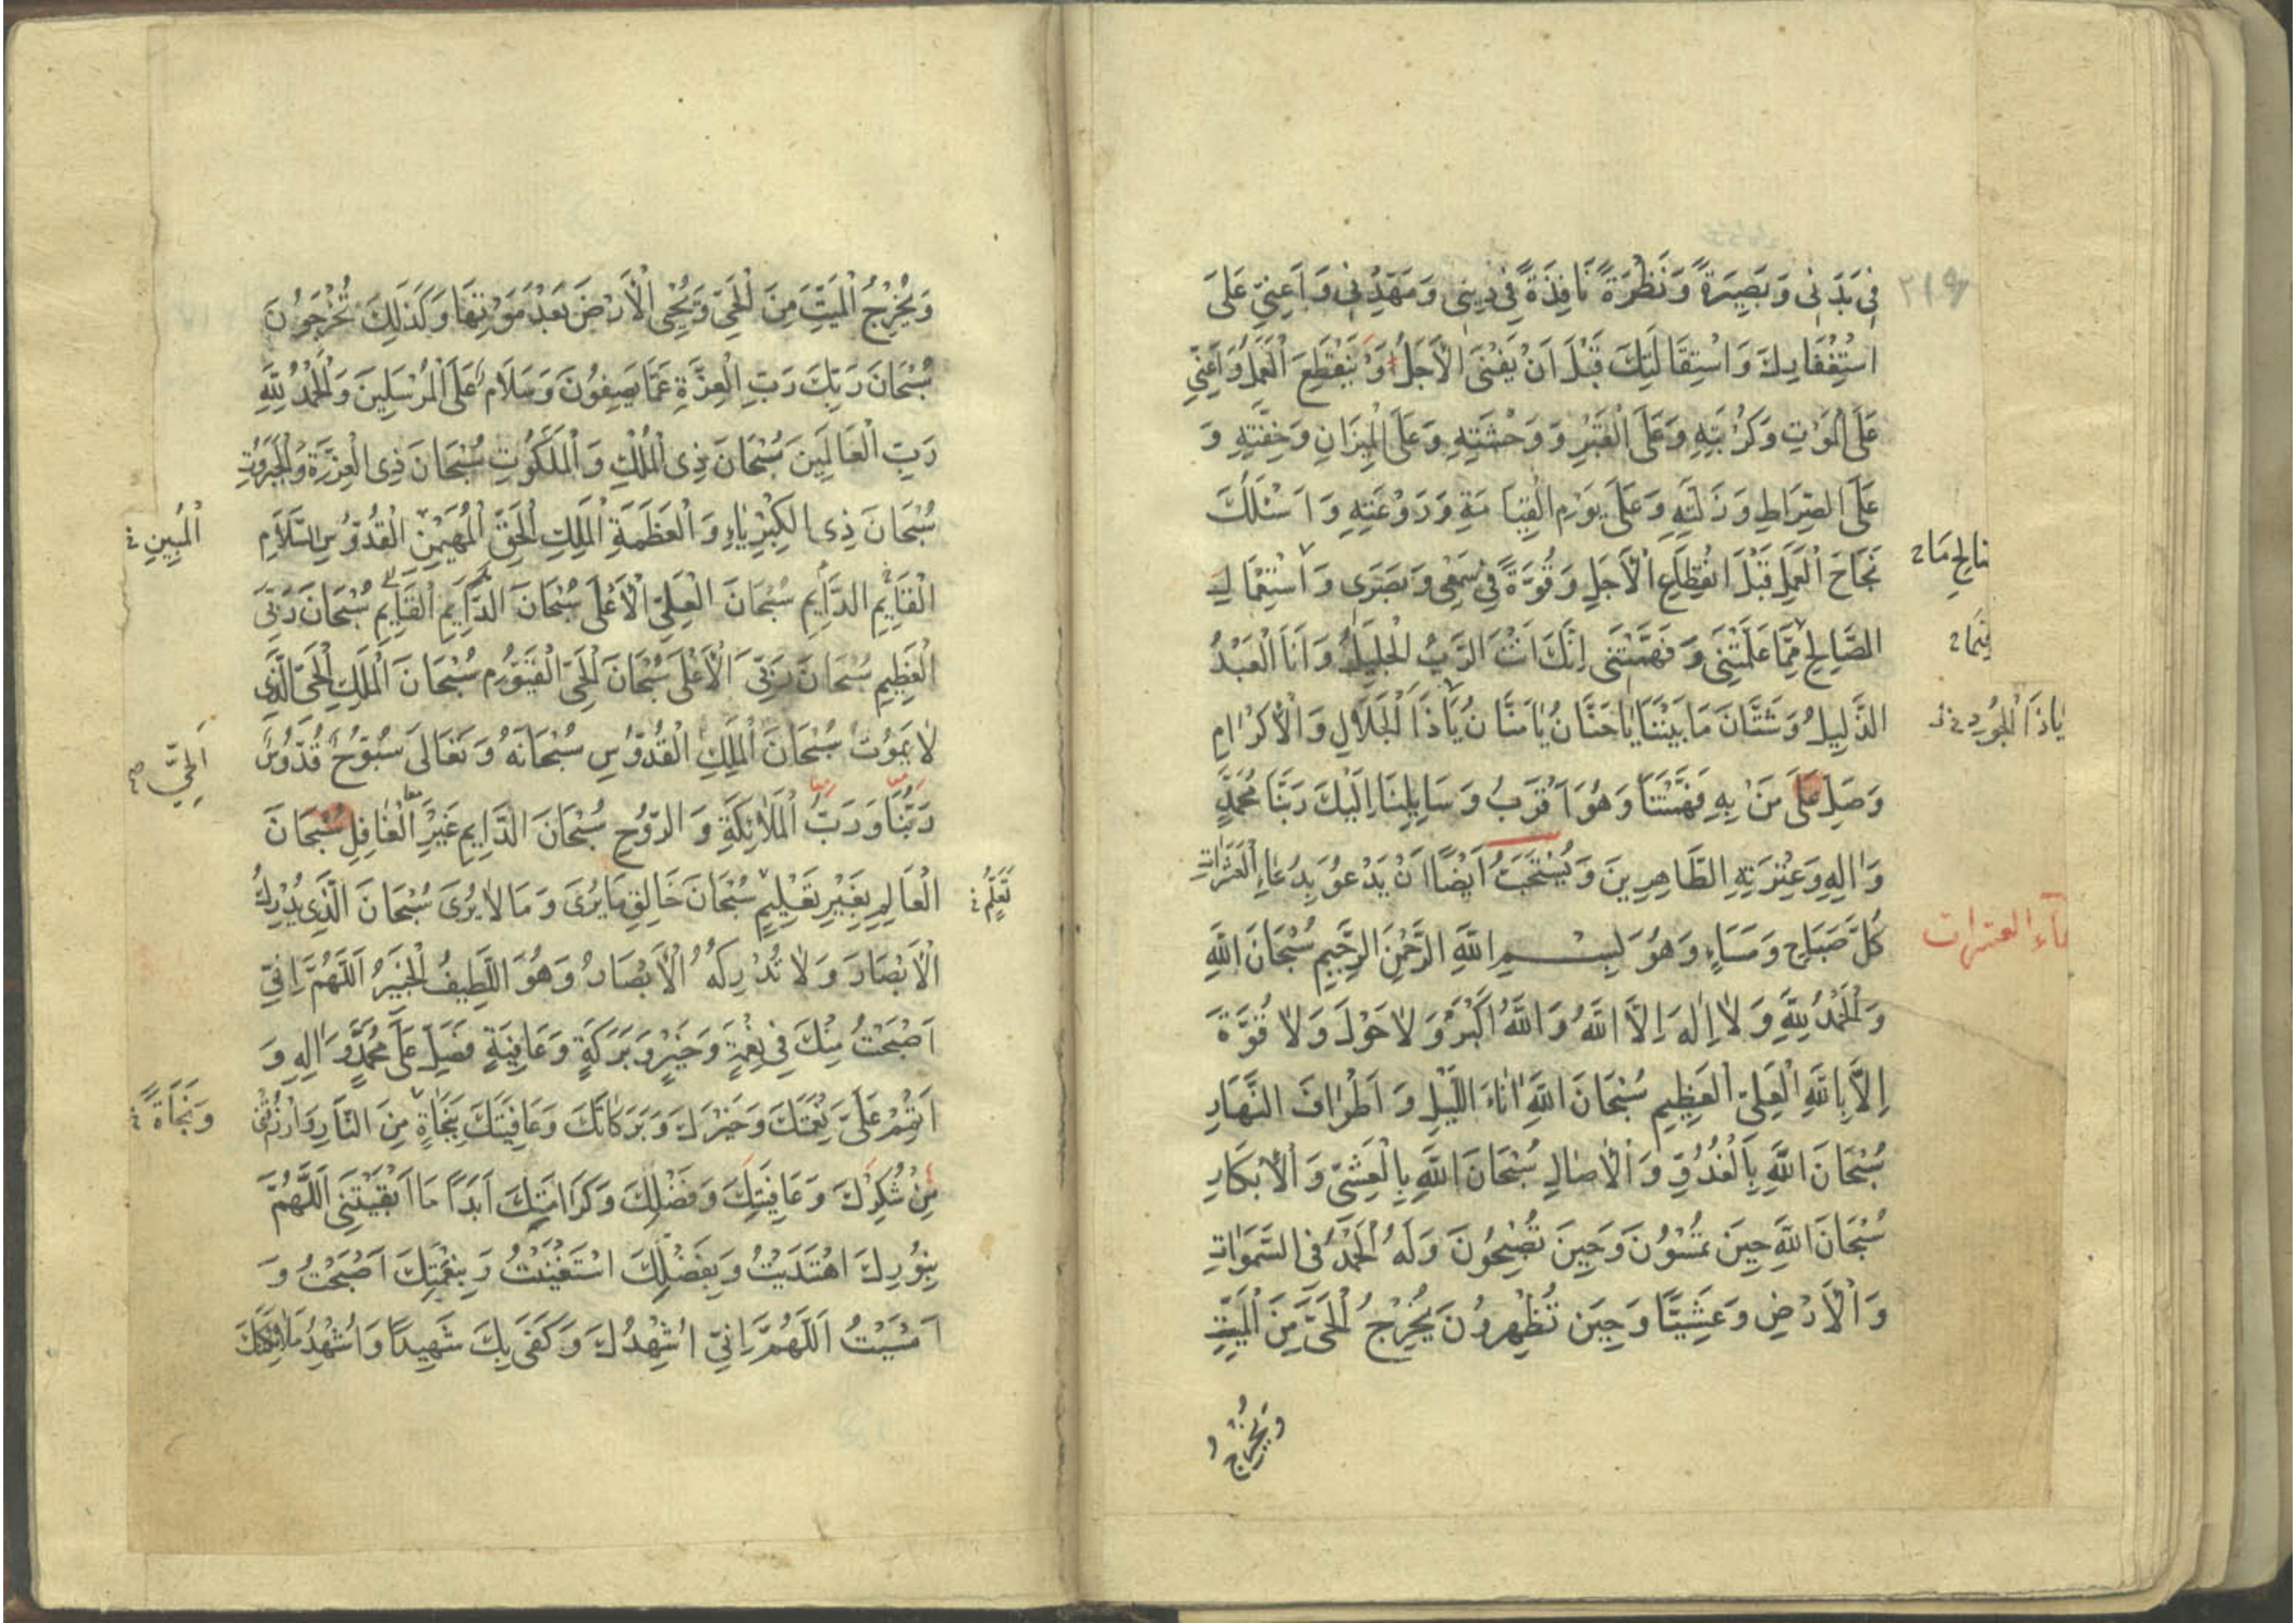 ٢١٩
فِي بَدَنِي وَبَصِيرَةً وَنَظْرَةً نَافِذَةً فِي دِينِي وَمَهِّدْنِي وَاَعِنِّي عَلَى
اسْتِغْفَارِكَ وَاسْتِقَالَتِكَ قَبْلَ اَنْ يَفْنَى الْاَجَلُ وَيَنْقَطِعَ الْعَمَلُ وَاَعِنِّي
عَلَى الْمَوْتِ وَكُرْبَتِهِ وَعَلَى الْقَبْرِ وَوَحْشَتِهِ وَعَلَى الْمِيزَانِ وَخِفَّتِهِ وَ
عَلَى الصِّرَاطِ وَزَلَّتِهِ وَعَلَى يَوْمِ الْقِيَامَةِ وَرَوْعَتِهِ وَاَسْئَلُكَ
نَجَاحَ الْعَمَلِ قَبْلَ انْقِطَاعِ الْاَجَلِ وَقُوَّةً فِي سَمْعِي وَبَصَرِي وَاسْتِعْمَالِ
الصَّالِحِ مِمَّا عَلَّمْتَنِي وَفَهَّمْتَنِي اِنَّكَ اَنْتَ الرَّبُّ الْجَلِيلُ وَاَنَا الْعَبْدُ
الذَّلِيلُ وَشَتَّانَ مَا بَيْنَنَا يَا حَنَّانُ يَا مَنَّانُ يَا ذَا الْجَلَالِ وَالْاِكْرَامِ
يَا ذَا الْجُودِ
وَصَلِّ عَلَى مَنْ بِهِ فَهَّمْتَنَا وَهُوَ اَقْرَبُ وَسَايِلِنَا اِلَيْكَ رَبَّنَا مُحَمَّدٍ
وَاٰلِهِ وَعِتْرَتِهِ الطَّاهِرِينَ وَيُسْتَحَبُّ اَيْضًا اَنْ يَدْعُوَ بِدُعَاءِ الْعَشَرَاتِ
كُلَّ صَبَاحٍ وَمَسَاءٍ وَهُوَ بِسْمِ اللّٰهِ الرَّحْمٰنِ الرَّحِيمِ سُبْحَانَ اللّٰهِ
العشرات
وَالْحَمْدُ لِلّٰهِ وَلَا اِلٰهَ اِلَّا اللّٰهُ وَاللّٰهُ اَكْبَرُ وَلَا حَوْلَ وَلَا قُوَّةَ
اِلَّا بِاللّٰهِ الْعَلِيِّ الْعَظِيمِ سُبْحَانَ اللّٰهِ اٰنَاءَ اللَّيْلِ وَاَطْرَافَ النَّهَارِ
سُبْحَانَ اللّٰهِ بِالْغُدُوِّ وَالْاٰصَالِ سُبْحَانَ اللّٰهِ بِالْعَشِيِّ وَالْاِبْكَارِ
سُبْحَانَ اللّٰهِ حِينَ تُمْسُونَ وَحِينَ تُصْبِحُونَ وَلَهُ الْحَمْدُ فِي السَّمٰوَاتِ
وَالْاَرْضِ وَعَشِيًّا وَحِينَ تُظْهِرُونَ يُخْرِجُ الْحَيَّ مِنَ الْمَيِّتِ
وَيُخْرِجُ
وَيُخْرِجُ الْمَيِّتَ مِنَ الْحَيِّ وَيُحْيِي الْاَرْضَ بَعْدَ مَوْتِهَا وَكَذٰلِكَ تُخْرَجُونَ
سُبْحَانَ رَبِّكَ رَبِّ الْعِزَّةِ عَمَّا يَصِفُونَ وَسَلَامٌ عَلَى الْمُرْسَلِينَ وَالْحَمْدُ لِلّٰهِ
رَبِّ الْعَالَمِينَ سُبْحَانَ ذِي الْمُلْكِ وَالْمَلَكُوتِ سُبْحَانَ ذِي الْعِزَّةِ وَالْجَبَرُوتِ
سُبْحَانَ ذِي الْكِبْرِيَاءِ وَالْعَظَمَةِ الْمَلِكِ الْحَقِّ الْمُهَيْمِنِ الْقُدُّوسِ السَّلَامِ
الْمُبِينِ
الْقَايِمِ الدَّايِمِ سُبْحَانَ الْعَلِيِّ الْاَعْلَى سُبْحَانَ الدَّايِمِ الْقَايِمِ سُبْحَانَ رَبِّيَ
الْعَظِيمِ سُبْحَانَ رَبِّيَ الْاَعْلَى سُبْحَانَ الْحَيِّ الْقَيُّومِ سُبْحَانَ الْمَلِكِ الْحَيِّ الَّذِي
لَا يَمُوتُ سُبْحَانَ الْمَلِكِ الْقُدُّوسِ سُبْحَانَهُ وَتَعَالَى سُبُّوحٌ قُدُّوسٌ
اَلْحَيِّ
رَبُّنَا وَرَبُّ الْمَلَائِكَةِ وَالرُّوحِ سُبْحَانَ الدَّايِمِ غَيْرِ الْغَافِلِ سُبْحَانَ
الْعَالِمِ بِغَيْرِ تَعْلِيمٍ سُبْحَانَ خَالِقِ مَا يُرَى وَمَا لَا يُرَى سُبْحَانَ الَّذِي يُدْرِكُ
تَعَلُّمٍ
الْاَبْصَارَ وَلَا تُدْرِكُهُ الْاَبْصَارُ وَهُوَ اللَّطِيفُ الْخَبِيرُ اَللّٰهُمَّ اِنِّي
اَصْبَحْتُ مِنْكَ فِي نِعْمَةٍ وَخَيْرٍ وَبَرَكَةٍ وَعَافِيَةٍ فَصَلِّ عَلَى مُحَمَّدٍ وَاٰلِهِ وَ
اَتْمِمْ عَلَيَّ نِعْمَتَكَ وَخَيْرَكَ وَبَرَكَاتَكَ وَعَافِيَتَكَ بِنَجَاةٍ مِنَ النَّارِ وَارْزُقْنِي
وَنَجَاةً
مِنْ شُكْرِكَ وَعَافِيَتِكَ وَفَضْلِكَ وَكَرَامَتِكَ اَبَدًا مَا اَبْقَيْتَنِي اَللّٰهُمَّ
بِنُورِكَ اهْتَدَيْتُ وَبِفَضْلِكَ اسْتَغْنَيْتُ وَبِنِعْمَتِكَ اَصْبَحْتُ وَ
اَمْسَيْتُ اَللّٰهُمَّ اِنِّي اُشْهِدُكَ وَكَفَى بِكَ شَهِيدًا وَاُشْهِدُ مَلَائِكَتَكَ